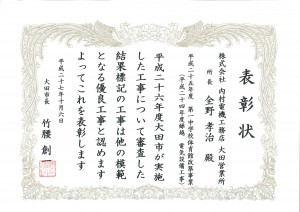 表彰状
株式会社 内村電機工務店 大田営業所
所長 全野孝治 殿
平成二十五年度 第一中学校体育館改築事業
(平成二十四年度繰越 電気設備工事)
平成二十六年度大田市が実施
した工事について審査した
結果標記の工事は他の模範
となる優良工事と認めます
よってこれを表彰します
平成二十七年十月六日
大田市長 竹腰創一